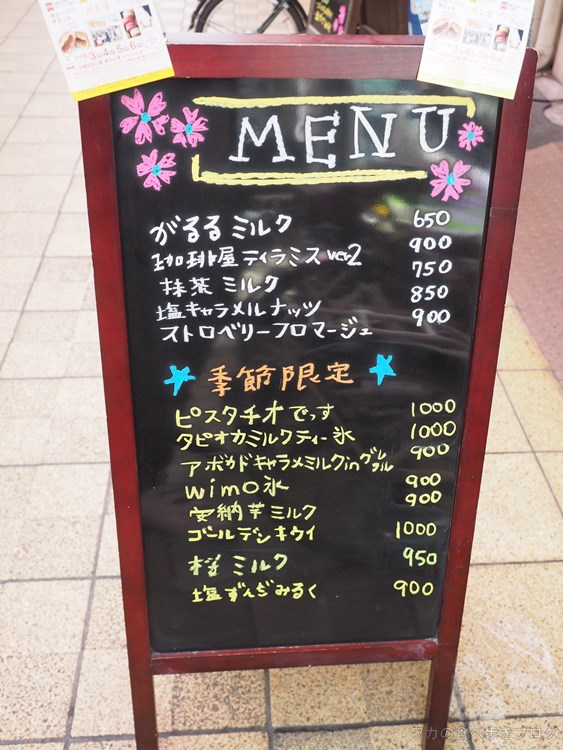 MENU
がるるミルク 650
珈琲屋ティラミス ver2 900
抹茶ミルク 750
塩キャラメルナッツ 850
ストロベリーフロマージュ 900
季節限定
ピスタチオでっす 1000
タピオカミルクティー氷 1000
アボカドキャラメミルクinグレフル 900
wimo氷 900
安納芋ミルク 900
ゴールデンキウイ 1000
桜ミルク 950
塩ずんだみるく 900
ワカの食べ歩きブログ